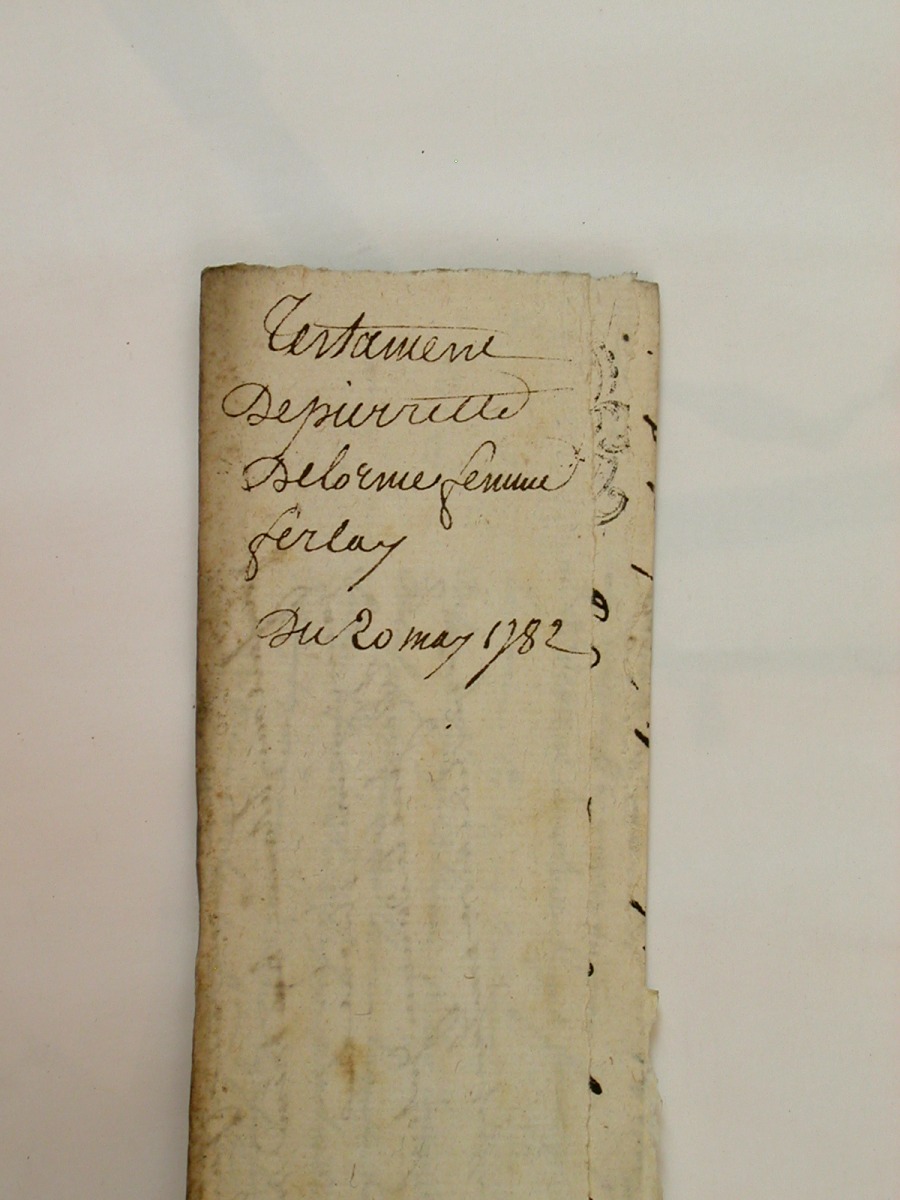 Testament
De pierrette
Delorme femme
ferlay
Du 20 may 1782